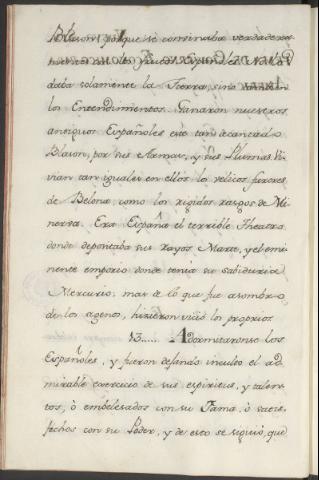 Blason; porque se construìa verdadera
daba solamente la Tierra, sino tambien
los Entendimientos. Ganaron nuestros
antiguos Españoles este tan decantado
Blason, por sus Armas, y sus Plumas. Vi-
vian tan iguales en ellos lo velicos furores
de Belona, como los rigidos rasgos de Mi-
nerva. Era España el terrible Theatro
donde depositaba sus rayos Marte, y el emi-
nente emporio donde tenia su sabiduria
Mercurio; mas de lo que fue asombro
de los agenos, hicieron vicio los proprios.
13..... Adormitaronse los
Españoles, y fueron dejando inculto el ad-
mirable exercicio de sus espiritus, y talen-
tos, ò embelesados con su Fama, ò satis-
fechos con su Poder, y de esto se siguiò, que